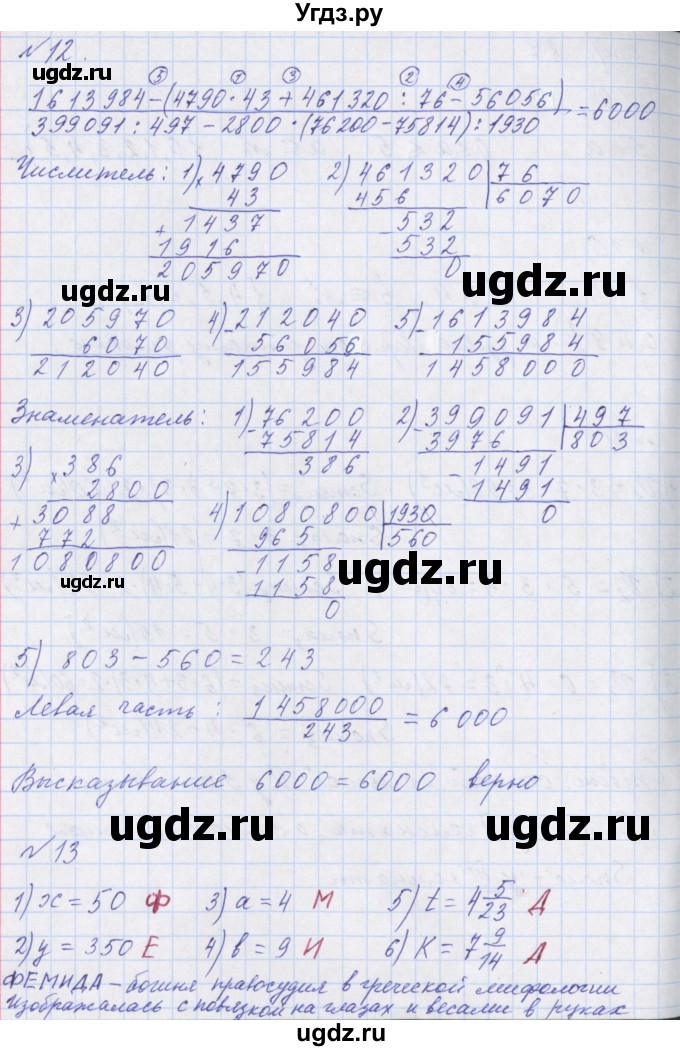 Угдз.ру
№ 12.
⑤ ① ③ ② ④
1613984-(4790·43+461320:76-56056)
399091:497-2800·(76200-75814):1930 =6000
Числитель: 1) 4790 2) 461320 | 76
× 43 456 6070
+ 1437 - 532
1916 532
205970 0
ugdz.ru ugdz.ru
3) 205970 4) - 212040 5) - 1613984
6070 56056 155984
212040 155984 1458000
Знаменатель: 1) - 76200 2) - 399091 | 497
75814 3976 803
386 - 1491
1491
0
3) × 386
2800
+ 3088
772
1080800
4) 1080800 | 1930
965 560
- 1158
1158
0
ugdz.ru ugdz.ru
5) 803-560=243
Левая часть: 1458000/243 = 6000
ugdz.ru
Высказывание 6000=6000 верно
ugdz.ru ugdz.ru
№ 13
1) x=50 Ф 3) a=4 М 5) t=4 5/23 Д
2) y=350 Е 4) b=9 И 6) K=7 9/14 А
ФЕМИДА - богиня правосудия в греческой мифологии
изображалась с повязкой на глазах и весами в руках
ugdz.ru ugdz.ru ugdz.ru